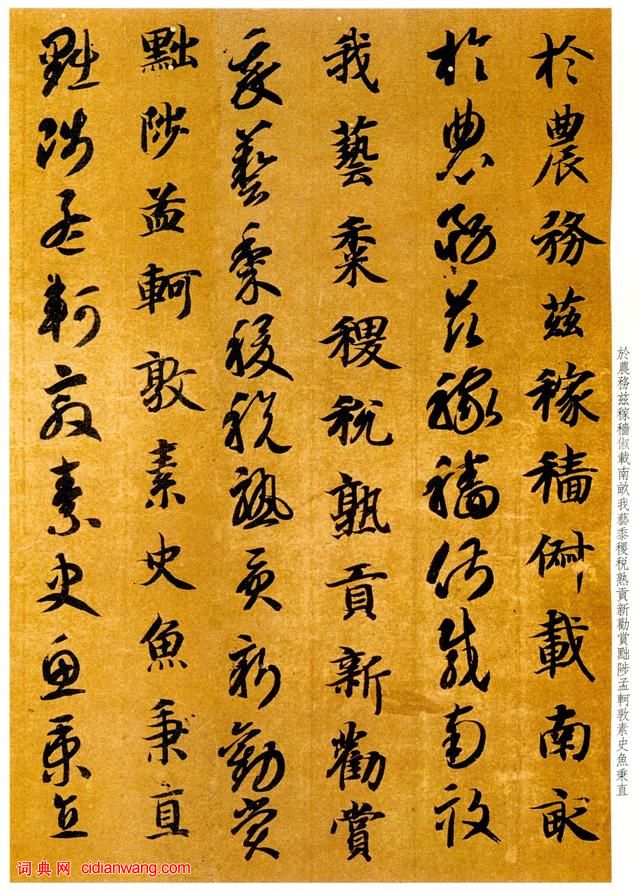 於農務茲稼穡俶載南畝
於農務茲稼穡俶載南畝
我藝黍稷稅熟貢新勸賞
我藝黍稷稅熟貢新勸賞
黜陟孟軻敦素史魚秉直
黜陟孟軻敦素史魚秉直
於農務兹稼穡俶載南畝我藝黍稷稅熟貢新勸賞黜陟孟軻敦素史魚秉直
词典网 cidianwang.com